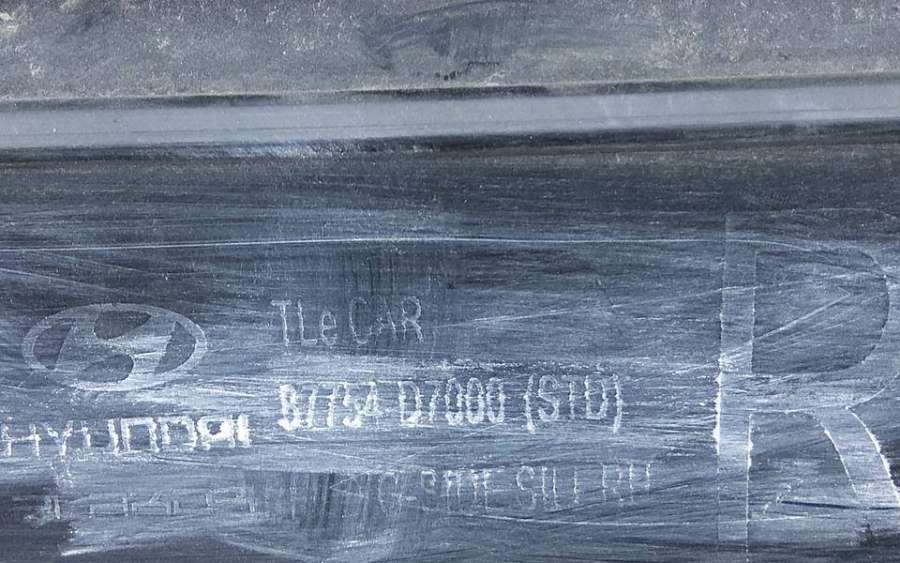 TLe CAR
HYUNDAI
87754-D7000 (STD)
SIDE SILL RH
R